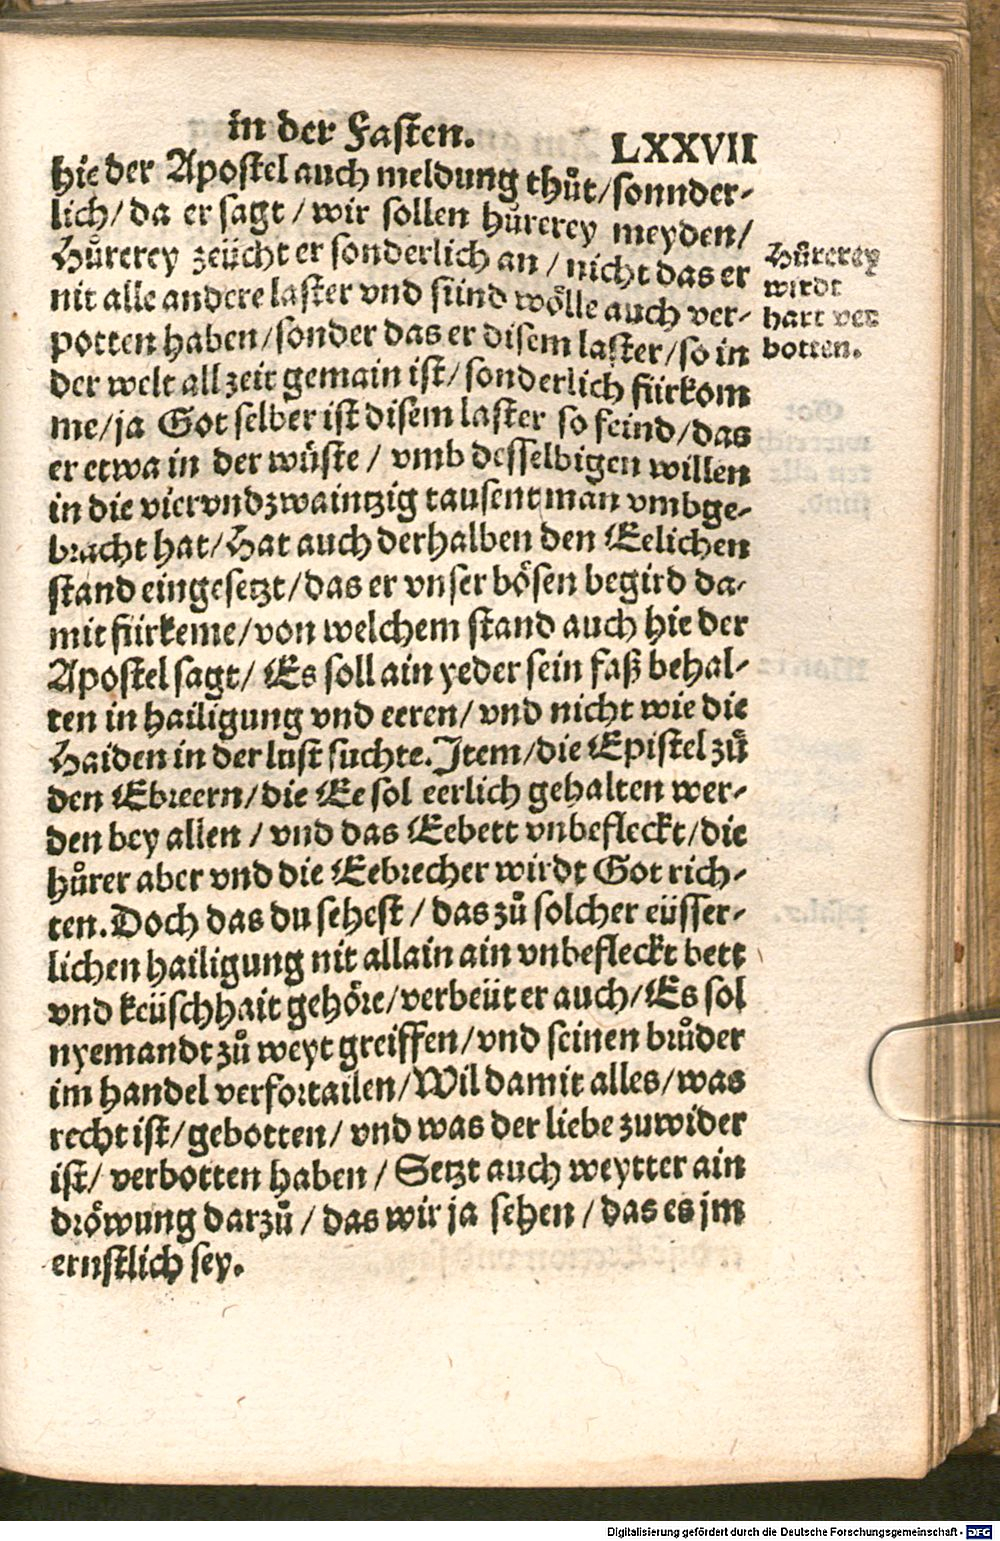 in der Fasten. LXXVII
hie der Apostel auch meldung thůt/sonnder-
lich/ da er sagt / wir sollen hůrerey meyden/
Hůrerey zeücht er sonderlich an / nicht das er
nit alle andere laster vnd sünd wölle auch ver-
potten haben/sonder das er disem laster/so in
der welt all zeit gemain ist/ sonderlich fürkom
me/ja Got selber ist disem laster so feind/das
er etwa in der wüste / vmb desselbigen willen
in die viervndzwaintzig tausent man vmbge-
bracht hat/Hat auch derhalben den Eelichen
stand eingesetzt/das er vnser bösen begird da-
mit fürkeme/von welchem stand auch hie der
Apostel sagt/ Es soll ain yeder sein faß behal-
ten in hailigung vnd eeren/ vnd nicht wie die
Haiden in der lust suchte. Item/die Epistel zů
den Ebreern/die Ee sol eerlich gehalten wer-
den bey allen / vnd das Eebett vnbefleckt/die
hůrer aber vnd die Eebrecher wirdt Got rich-
ten. Doch das du sehest / das zů solcher eüsser-
lichen hailigung nit allain ain vnbefleckt bett
vnd keüschhait gehöre/verbeüt er auch/Es sol
nyemandt zů weyt greiffen/vnd seinen brůder
im handel verfortailen/Wil damit alles/was
recht ist/gebotten/ vnd was der liebe zuwider
ist/ verbotten haben / Setzt auch weytter ain
dröwung darzů / das wir ja sehen / das es jm
ernstlich sey.
Hůrerey
wirdt
hart ver
botten.
Digitalisierung gefördert durch die Deutsche Forschungsgemeinschaft - DFG